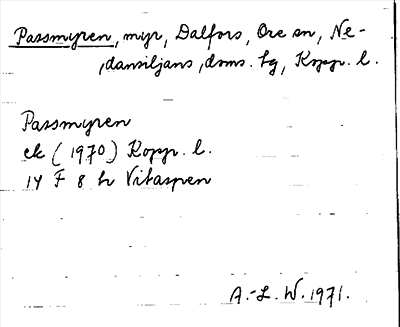 Passmyren, myr, Dalfors, Ore sn, Ne-
dansiljans, doms. tg, Kopp. l.
Passmyren
ek (1970) Kopp. l.
14 F 8 h Vitaspen
A.-L. W. 1971.